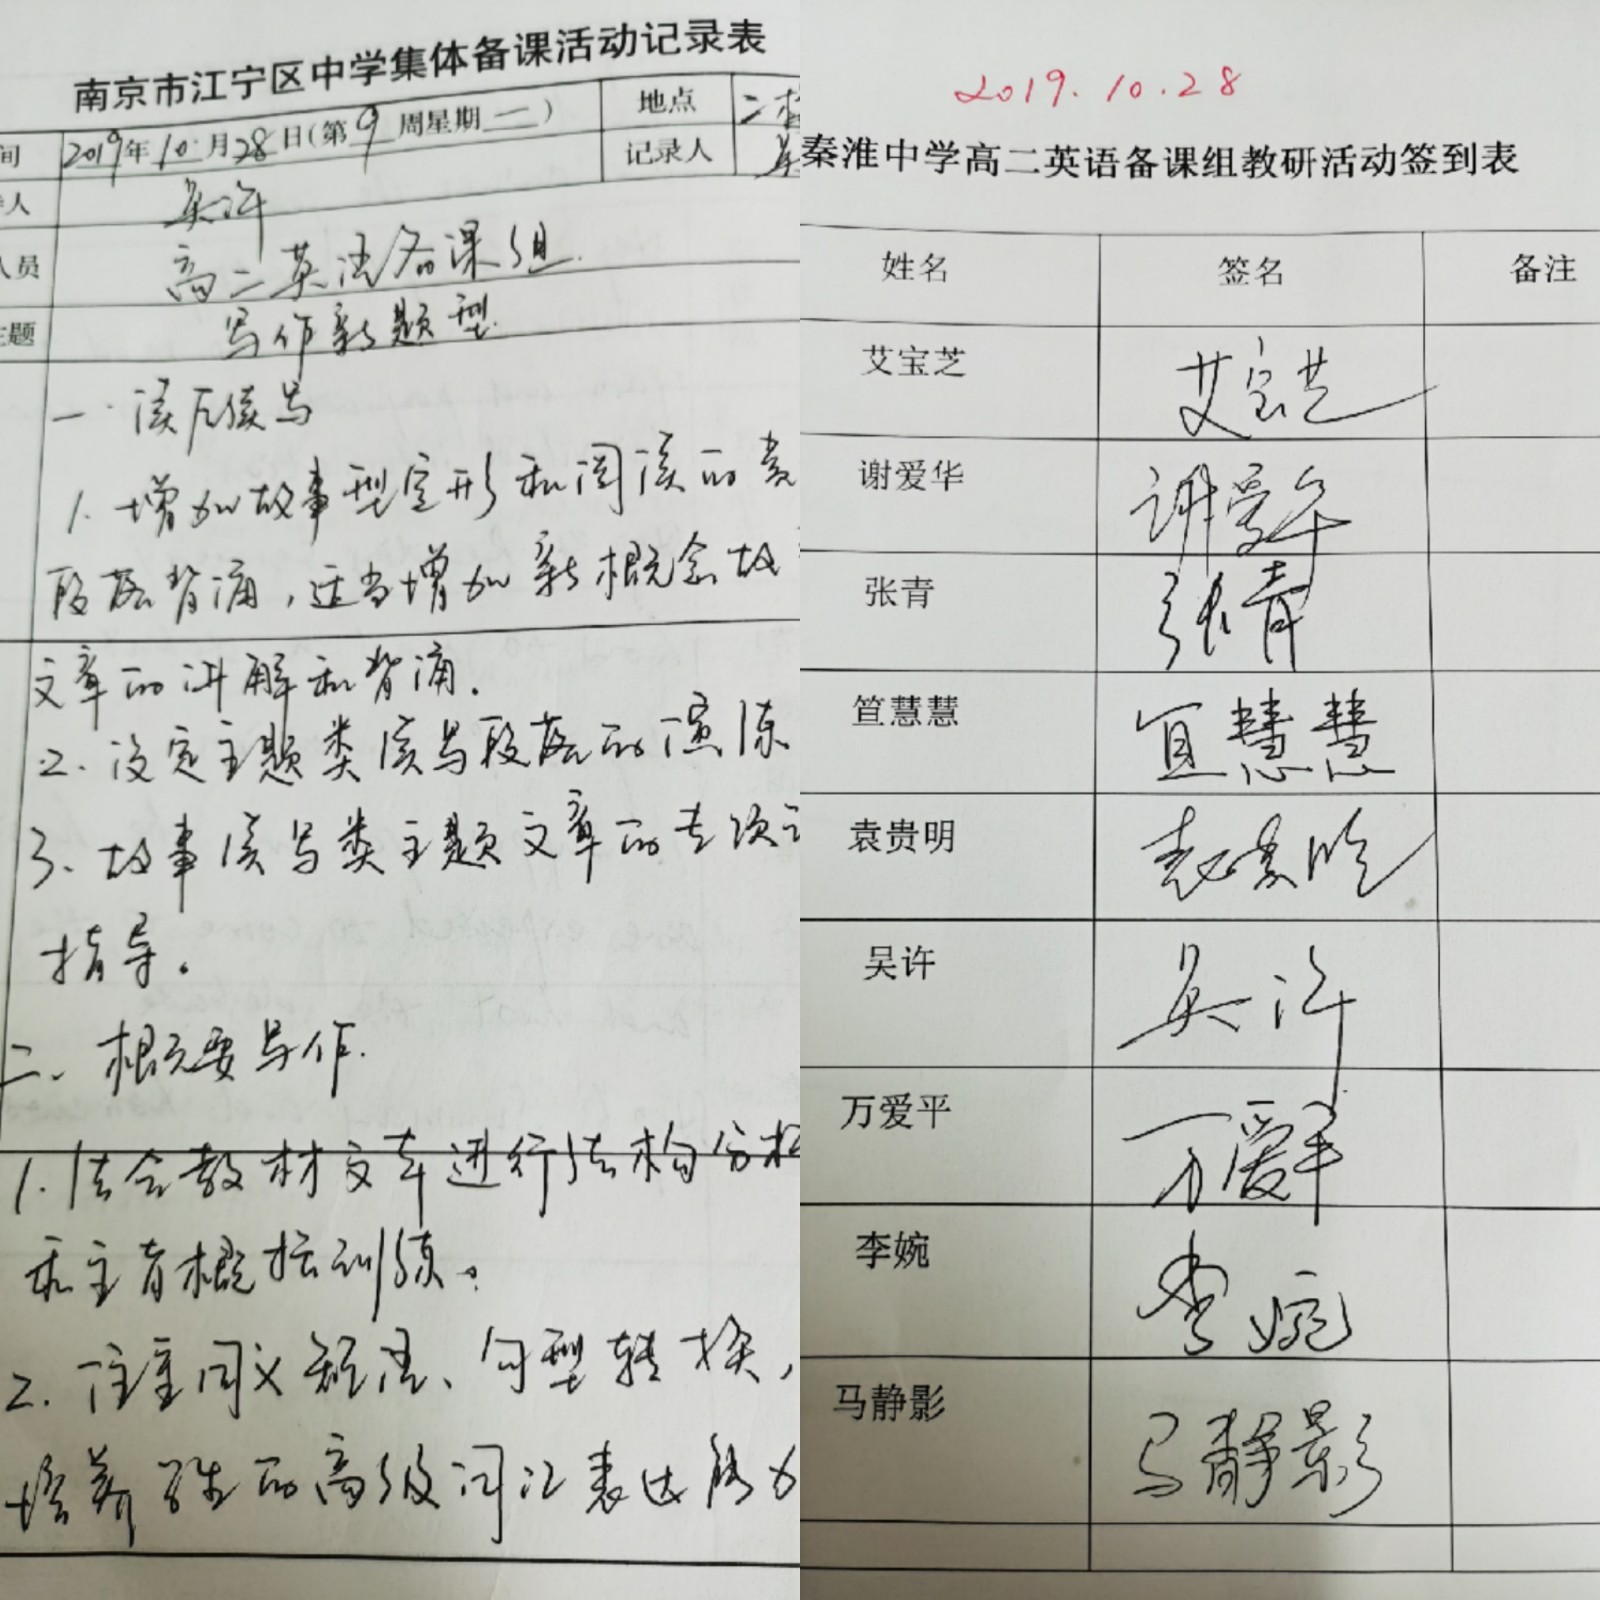 南京市江宁区中学集体备课活动记录表
间 2019年10月28日(第9周星期一) 地点 二
记录人 吴
人 吴许
人员 高二英语备课组.
主题 写作新题型
一. 读后续写
1. 增加故事型完形和阅读的
段落背诵,适当增加新概念故
文章的讲解和背诵.
2. 设定主题类续写段落的演练
3. 故事续写类主题文章的专项
指导。
二、概要写作.
1. 结合教材文本进行结构分析
和主旨概括训练。
2. 注重同义短语、句型转换,
培养学生的高级词汇表达能力
2019.10.28
秦淮中学高二英语备课组教研活动签到表
姓名 签名 备注
艾宝芝 艾宝芝
谢爱华 谢爱华
张青 张青
笪慧慧 笪慧慧
袁贵明 袁贵明
吴许 吴许
万爱平 万爱平
李婉 李婉
马静影 马静影